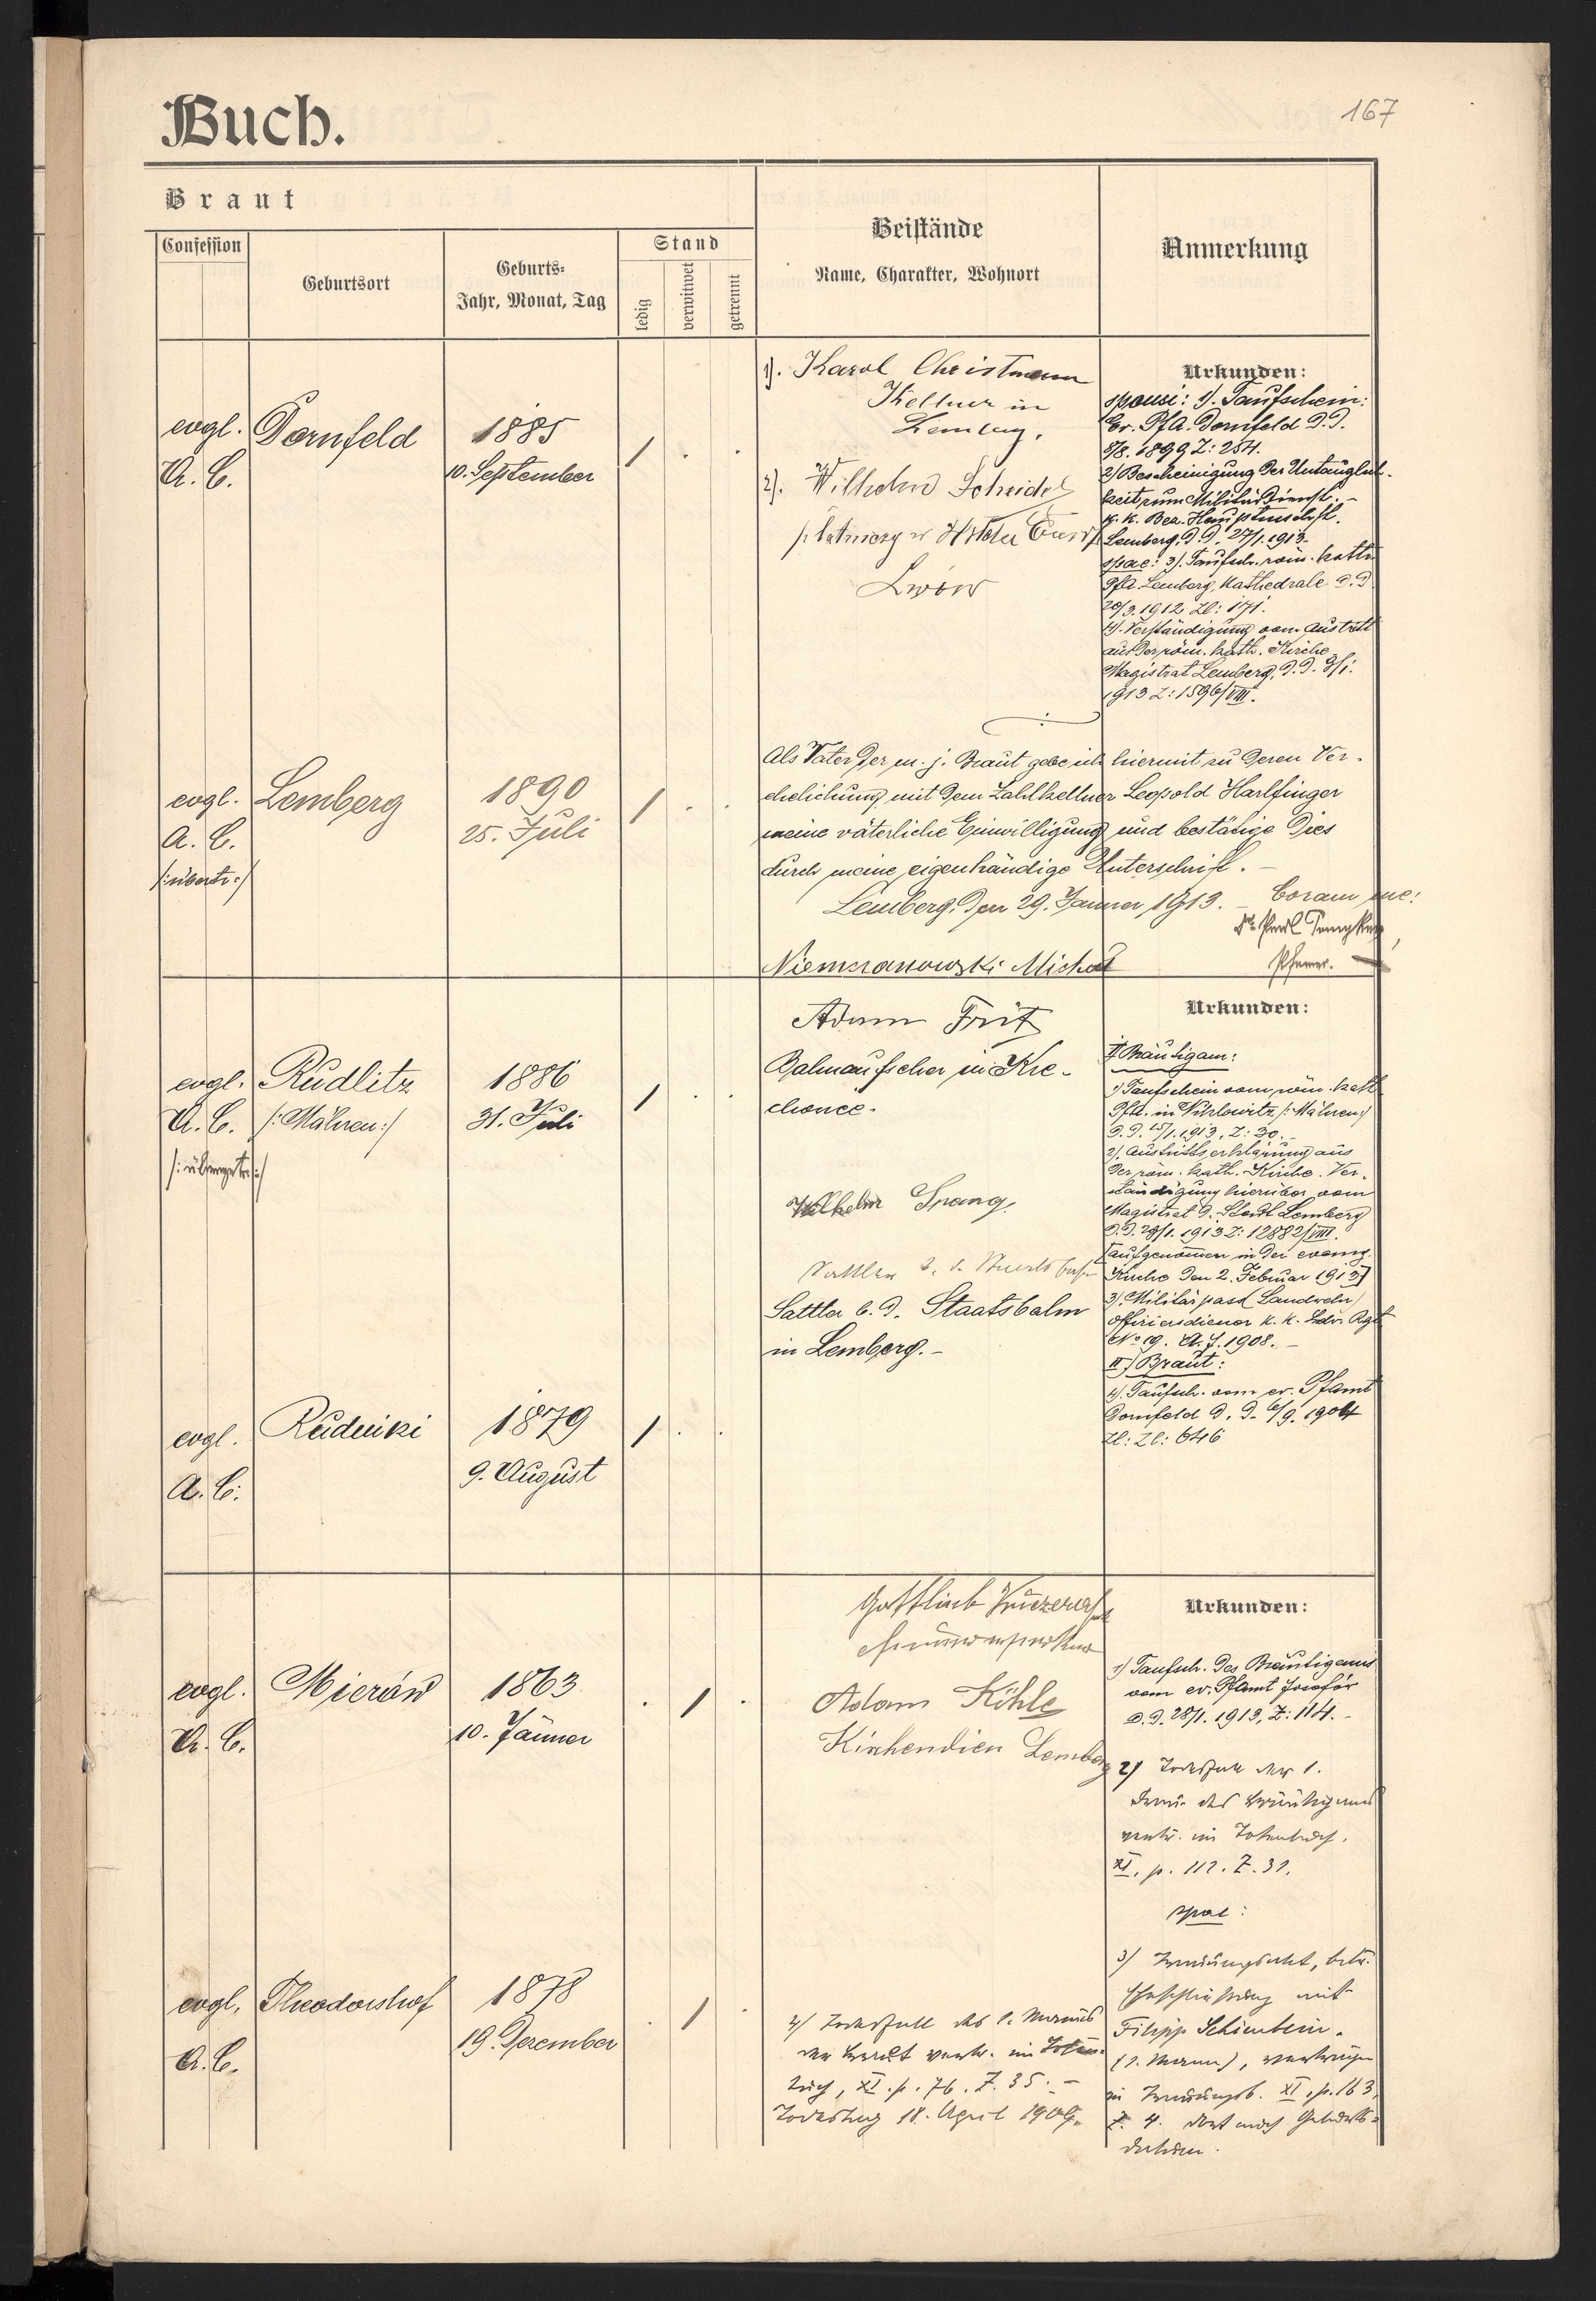 Buch.
167
Braut
Confession
Geburtsort
Geburts-
Jahr, Monat, Tag
Stand
ledig
verwitwet
getrennt
Beistände
Name, Charakter, Wohnort
Anmerkung
evgl.
A. C.
Dornfeld
1885
10. September
1). Karol Christmann
Kellner in
Lemberg.
2). Wilhelm Scheidel
płatniczy w Hotelu
Lwów
Urkunden:
sponsi: 1). Taufschein:
Ev. PfA. Dornfeld d.d.
8/8. 1899 Z: 254.
2) Bescheinigung der Untauglich-
keit zum Militärdienst. –
k. k. Bez. Hauptmschft.
Lemberg, d.d. 27/1. 1913.
spae: 3). Taufsch. röm. kath.
PfA. Lemberg, Kathedrale d.d.
20/3. 1912 Zl: 171.
4). Verständigung vom Austritt
aus der röm. kath. Kirche
Magistrat Lemberg, d.d. 3/1.
1913 Z: 1596/VIII.
evgl.
A. C.
/:übertr:/
Lemberg
1890
25. Juli
Als Vater der m. j. Braut gebe ich hiermit zu deren Ver-
ehelichung mit dem Zahlkellner Leopold Harlfinger
meine väterliche Einwilligung und bestätige dies
durch meine eigenhändige Unterschrift. –
Lemberg, den 29. Jänner 1913. – Coram me:
Pfarrer.
Niemczanowski Michał
evgl.
A. C.
/:übergetr:/
Rudlitz
/:Mähren:/
1886
31. Juli
Adam Fritz
Bahnaufseher in Kre-
chowce.
Wilhelm Spang
Sattler b. d. Staatsbahn
Sattler b. d. Staatsbahn
in Lemberg. –
Urkunden:
I) Bräutigam:
1) Taufschein vom röm. kath.
PfA. in /:Mähren:/
d.d. 15/1. 1913, Z: 30. –
2). Austrittserklärung aus
der röm. kath. Kirche. Ver-
ständigung hierüber vom
Magistrat d. Stadt Lemberg
d.d. 29/1. 1913 Z: 12882/VIII.
[aufgenommen in der evang.
Kirche den 2. Februar 1913]
3). Militärpass (Landwehr)
Offiziersdiener k. k. Ldw. Rgt
No 19. A. J. 1908. –
II) Braut:
4). Taufsch. vom ev. Pfamt
Dornfeld d. d. 6/9. 1904
Zl: Zl: 646
evgl.
A. C.
Rudniki
1879
9. August
evgl.
A. C.
Mierów
1863
10. Jänner
Gottlieb
Adam Köhle
Kirchendien Lemberg
Urkunden:
1) Taufsch. des Bräutigams
vom ev. Pfamt Josefów
d.d. 28/1. 1913, Z: 114. –
2) Todesfall der 1.
Frau des Bräutigams
vertr. im Totenbuch.
XI, p. 112. Z. 31.
spae:
evgl.
A. C.
Theodorshof
1878
19. Dezember
4) Todesfall des 1. Mannes
der Braut vertr. im Toten-
buch, XI. p. 76. Z. 35. –
Todestag 18. April 1909.
3) Trauungsakt, betr.
Eheschließung mit
Filipp Schienbein.
(1. Mann), vertragen
in Trauungsb. XI, p. 163,
Z. 4. dort auch Geburts-
datum.